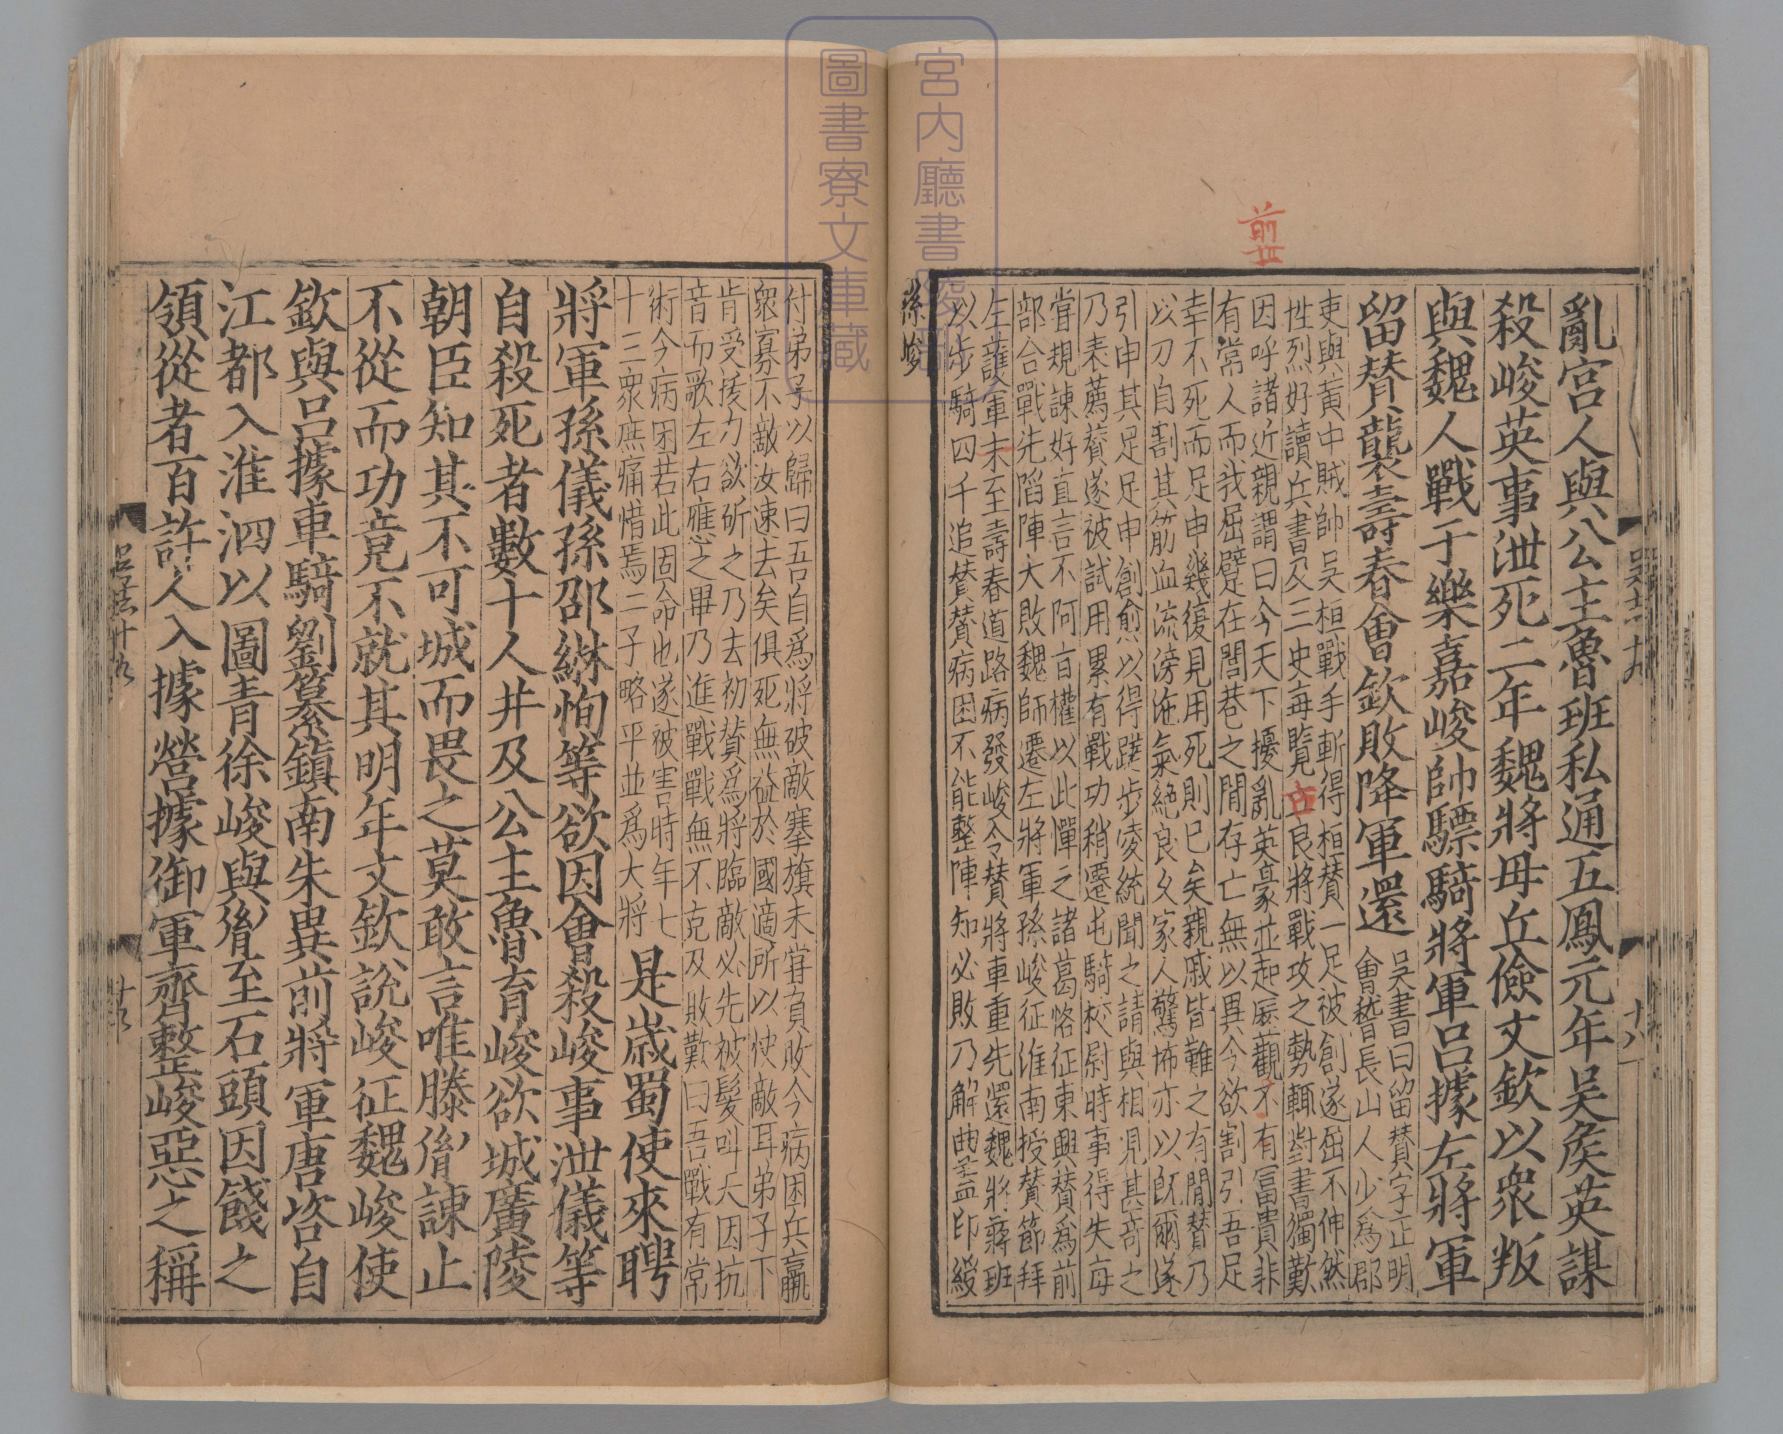 亂宮人與公主魯班私通五鳳元年吳侯英謀
殺峻英事泄死二年魏將毋丘儉文欽以衆叛
與魏人戰于樂嘉峻帥驃騎將軍呂據左將軍
留賛襲壽春會欽敗降軍還
吳書曰留賛字正明
會稽長山人少爲郡
吏與黃巾賊帥吳桓戰手斬得桓賛一足被創遂屈不伸然
性烈好讀兵書及三史每覽古良將戰攻之勢輒對書獨歎
因呼諸近親謂曰今天下擾亂英豪並起歷觀不有富貴非
有常人而我屈躄在閭巷之間存亡無以異今欲割引吾足
幸不死而足申幾復見用死則已矣親戚皆難之有間賛乃
以刀自割其筋血流滂沱氣絕良久家人驚怖亦以旣爾遂
引申其足足申創愈以得蹉步凌統聞之請與相見甚奇之
乃表薦賛遂被試用累有戰功稍遷屯騎校尉時事得失每
當規諫好直言不阿㫖權以此憚之諸葛恪征東興賛爲前
部合戰先陷陣大敗魏師遷左將軍孫峻征淮南授賛節拜
左護軍未至壽春道路病發峻令賛將車重先還魏將蔣班
以步騎四千追賛賛病困不能整陣知必敗乃解曲蓋印綬
孫峻
吳志十九
十八
宮内廳書陵部
圖書寮文庫藏
翦
付弟子以歸曰吾自爲將破敵搴旗未甞負敗今病困兵羸
衆寡不敵汝速去矣俱死無益於國適所以快敵耳弟子下
肯受拔刀欲斫之乃去初賛爲將臨敵必先被髮叫天因抗
音而歌左右應之畢乃進戰戰無不克及敗歎曰吾戰有常
術今病困若此固命也遂被害時年七
十三衆庶痛惜焉二子略平並爲大將
是歲蜀使來聘
將軍孫儀孫邵綝恂等欲因會殺峻事泄儀等
自殺死者數十人并及公主魯育峻欲城廣陵
朝臣知其不可城而畏之莫敢言唯滕胤諫止
不從而功竟不就其明年文欽說峻征魏峻使
欽與呂據車騎劉纂鎮南朱異前將軍唐咨自
江都入淮泗以圖青徐峻與胤至石頭因餞之
領從者百許人入據營據御軍齊整峻惡之稱